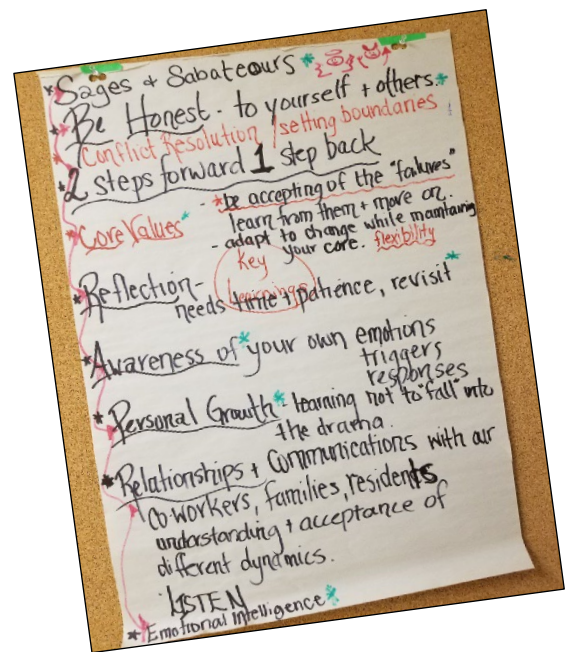 * Sages + Sabateours *
* Be Honest - to yourself + others. *
* Conflict Resolution / setting boundaries
* 2 steps forward 1 step back
- * be accepting of the "failures"
learn from them + move on.
* Core Values *
- adapt to change while maintaining
your core. flexibility
key
learnings
* Reflection-
needs time + patience, revisit *
* Awareness of * your own emotions
triggers
responses
* Personal Growth * - learning not to "fall" into
the drama.
* Relationships + Communications with our
co-workers, families, residents
understanding + acceptance of
different dynamics.
LISTEN
* Emotional Intelligence *